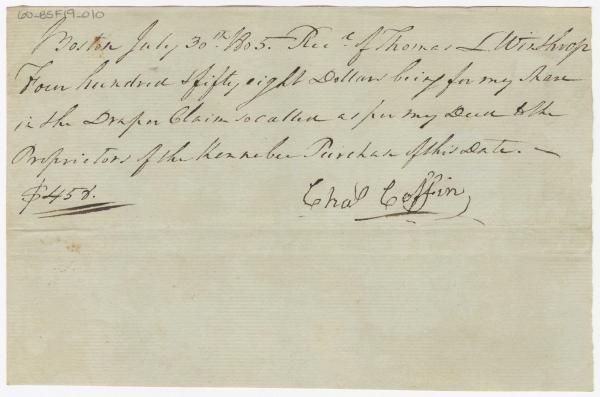 60-BSF19-010
Boston July 30th 1805. Rec.d of Thomas L Winthrop
Four hundred & fifty eight Dollars being for my share
in the Draper Claim so called as per my Deed to the
Proprietors of the Kennebec Purchase of this Date. —
$458.
Chas Coffin